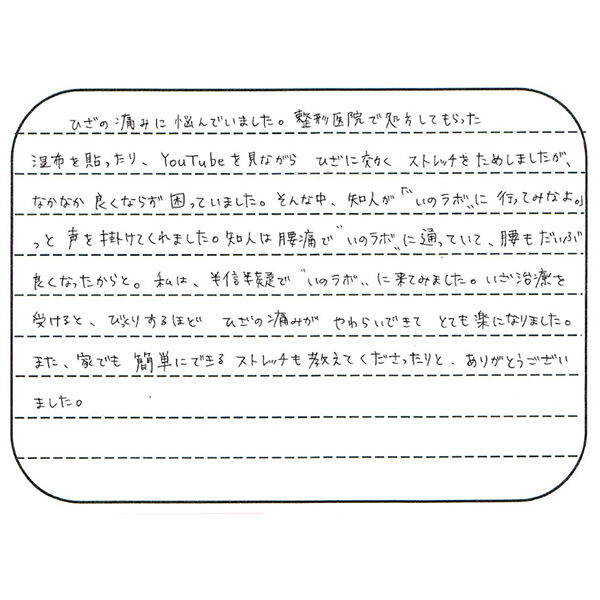 ひざの痛みに悩んでいました。整形医院で処方してもらった
湿布を貼ったり、YouTubeを見ながら ひざに効く ストレッチをためしましたが、
なかなか良くならず困っていました。そんな中、知人が「"いのラボ"に行ってみなよ。」
っと声を掛けてくれました。知人は腰痛で"いのラボ"に通っていて、腰もだいぶ
良くなったからと。私は、半信半疑で"いのラボ"に来てみました。いざ治療を
受けると、びっくりするほど ひざの痛みが やわらいできて とても楽になりました。
また、家でも簡単にできるストレッチも教えてくださったりと、ありがとうござい
ました。